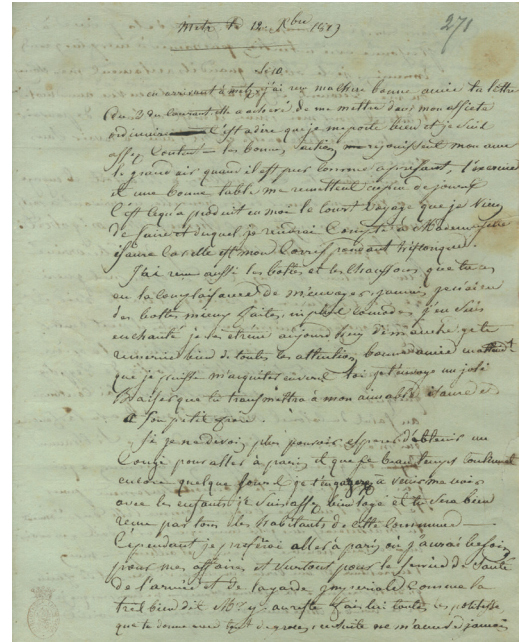 Metz le 12 Xbre 1813
271
en arrivant à metz j'ai reçu ma chère bonne amie ta lettre
du 3 du courant elle a achevé de me mettre dans mon assiette
ordinaire c'est à dire que je me porte bien et je suis
assez content les bonnes réjouissent mon ame
le grand air quand il est pur comme à présent, l'exercice
et une bonne table me remettent en peu de jours
c'est ce qu'a produit en moi le court voyage que je viens
de faire et duquel je rendrai compte à Mademoiselle
isaure car elle est mon correspondant historique.
J'ai reçu aussi les bottes et les chaussons que tu as
eu la complaisance de m'envoyer, jamais je n'ai eu
des bottes mieux faites, ni plus comodes, j'en suis
enchanté je les étrenne aujourd'hui dimanche, je te
remercie bien de toutes tes attentions bonne amie
que je puisse m'acquitter envers toi je t'envoye un joli
Baiser que tu transmettra à mon aimable isaure et
a son petit frère.
Si je ne devois plus pouvoir esperer d'obtenir un
Congé pour aller à paris et que le beau temps continuat
encore quelque jours je t'engagerais a venir me voir
avec les enfants je suis assez bien logé et tu sera bien
reçue par tous les habitants de cette Commune
Cependant je préférerai aller à paris où j'aurai besoin
pour mes affaires et surtout pour le service de Santé
de l'armée et de la garde Comme la
très bien dit Mr au reste fais lui toutes politesses
que te donne avec tout ne m'a jamais